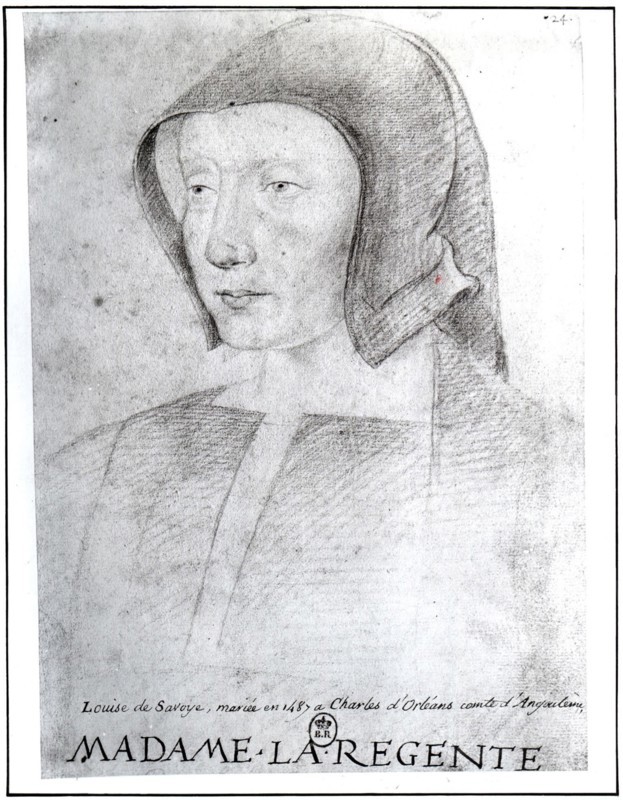 24.
Louise de Savoye, mariée en 1487 a Charles d'Orléans comte d'Angouleme,
B.R
MADAME·LA·REGENTE